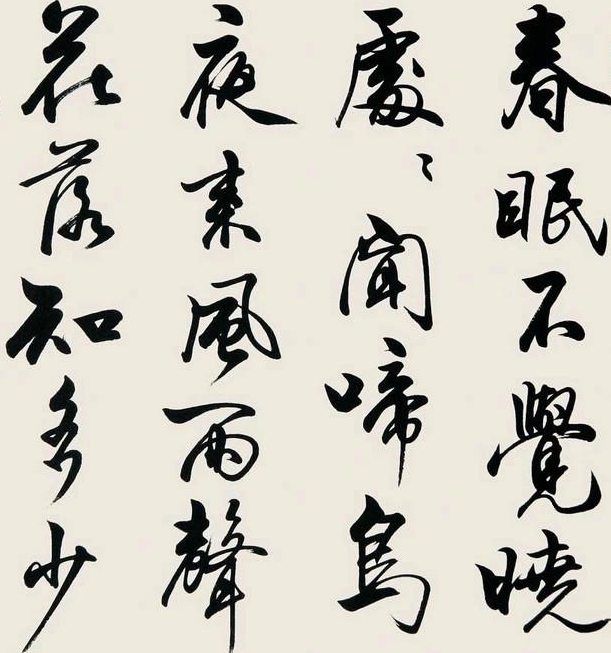 春眠不覺曉
處〻聞啼鳥
夜來風雨聲
花落知多少